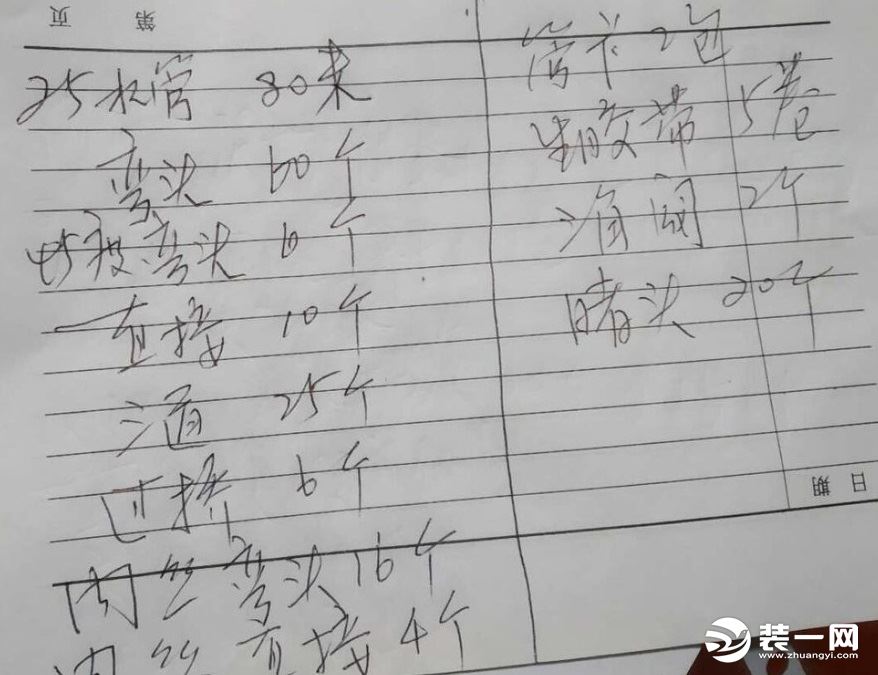 第 页
25水管 80米
弯头 60个
45度弯头 6个
直接 10个
三通 25个
过桥 6个
内丝弯头 16个
内丝直接 4个
管卡 2包
生胶带 5卷
三角阀 2个
堵头 20个
日期
装一网
www.zhuangyi.com